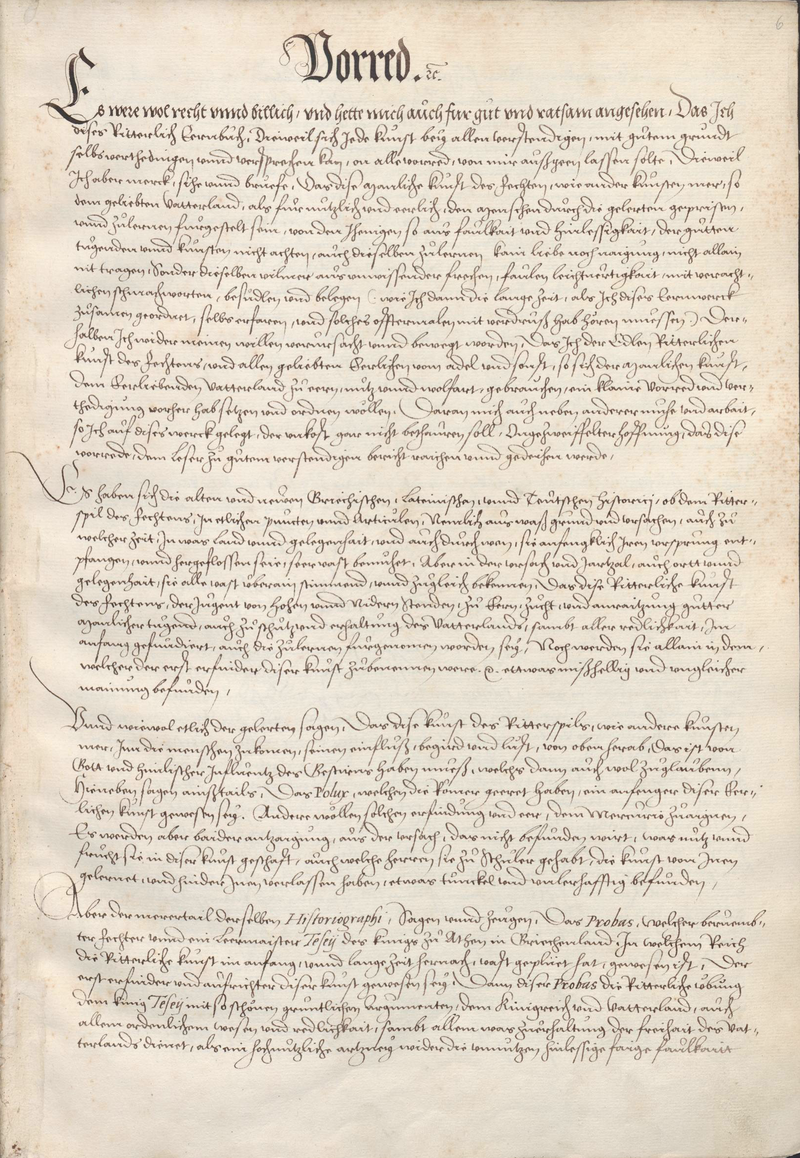 6
Vorred. ꝛc.
Es were wol recht vnnd billich, vnd hette mich auch fur gůt vnd ratsam angesehen, Das Ich
dises Ritterlich Lernbuch, Dieweil sich Jede kunst bey allen verstendigen, mit gůtem grundt
selbs verthedingen vnnd versprechen kan, on alle vorred, von mir außgeen lassen solte, Dieweil
Ich aber merck, sihe vnnd brueffe, Das dise Manliche kunst des Fechten, wie ander kunsten mer, so
dem geliebten Vatterland, als fur nutzlich vnd eerlich, den menschen durch die gelerten geprisen,
vnnd zulernen furgestelt sein, von den Ihenigen so auß faulkait vnd hinlessigkait, der gůtten
tugenden vnnd kunsten nicht achten, auch dieselben zulernen kain liebe noch naigung, nicht allain
nit tragen, Sonder dieselben vilmer aus vnwissender frechen, faulen leichtuertigkait, mit veracht-
lichen schmachworten, besudlen vnd belegen (wie Ich dann die lange zeit, als Ich dises Lernwerck
zusamen geordnet, selbs erfaren, vnd solches offtermalen mit verdruß hab hören müessen) Der-
halben Ich wider meinen willen verursacht vnnd bewegt worden, Das Ich der Edlen Ritterlichen
kunst des Fechtens, vnd allen geliebten Eerlichen vom adel vnd sonst, so sich der Manlichen kunst,
dem Eerliebenden Vatterland zu eern, nutz vnnd wolfart, gebrauchen, ein klaine Vorred vnd ver-
thedigung vorher hab setzen vnd ordnen wöllen, Daran mich auch neben anderer muhe vnd arbait,
so Ich auf dises werck gelegt, der vnkost gar nicht bethauren soll, Ongezweiffelter hoffnung, das dise
vorrede, dem leser zu gůtem verstendigen bericht raichen vnnd gedeihen werde,
Es haben sich die alten vnd neuen Griechischen, Lateinischen, vnnd Teutschen Historici, ob dem Ritter-
spil des Fechtens, In etlichen puncten vnnd Articulen, Nemlich aus waß grund vnd vrsachen, auch zů
welcher zeit, In was land vnnd gelegenhait, vnd auch durch wen, sie anfengklich Iren vrsprung ent-
pfangen, vnnd hergeflossen seie, seer vast bemuhet, Aber in der vrsach vnd Jartzal, auch ortt vnnd
gelegenhait, sie alle vast uberain stimmend, vnnd zugleich bekennen, Das dise Ritterliche kunst
des Fechtens, der Jugent von hohen vnnd Nidern Stenden, zu Eern, zucht, vnd anraitzung gůtter
Manlicher tugend, auch zu schutz vnd erhaltung des Vatterlands, sambt aller redlichkait, Im
anfang gefundiert, auch die zulernen furgenomen worden sey, Noch werden sie allain in dem,
welcher der erst erfinder diser kunst zubenennen were ꝛc. ettwas mißhellig vnd vngleicher
mainung befunden,
Vnnd wiewol etlich der gelerten sagen, Das dise kunst des Ritterspils, wie andere kunsten
mer, Inn die menschen zukomen, seinen einfluß, begird vnd lust, von oben herab, Das ist von
Gott vnd himlischer Influentz des Gestirns haben mueß, welchs dann auch wol zuglauben,
Hieneben sagen ainßtails, Das Polux, welchen die Römer geeret haben, ein anfenger diser Eer-
lichen kunst gewesen sey. Andere wöllen solchen erfindung vnd eer, dem Mercurio zuaignen,
Es werden aber baider antzaigung, aus der vrsach, das nicht befunden wirt, was nutz vnnd
frucht sie in diser kunst geschaft, auch welche herren sie zu Schuler gehabt, die kunst von Inen
gelernet, vnd hinder Inen verlassen haben, etwas tunckel vnd vnlerhafftig befunden,
Aber der merertail derselben Historiographi, Sagen vnnd zeugen, Das Probas, welcher beruemb-
ter Fechter vnnd ein Leermaister Tesey des kunigs zu Athen in Griechenland, In welchem Reich
die Ritterliche kunst im anfang, vnnd lange zeit hernach, vast geplůet hat, gewesen ist, Der
erst erfinder vnd aufrichter diser kunst gewesen sey, Dann diser Probas die Ritterliche vbung
dem kunig Tesey mit so schönen gruntlichen Argumenten, dem kunigreich vnd Vatterland, auch
allem ordenlichem wesen vnd redlichkait, sambt allem was zu erhaltung der freihait des Vat-
terlands dienet, als ein hochnutzliche artzney wider die vnnutzen, hinlessige faige faulkait